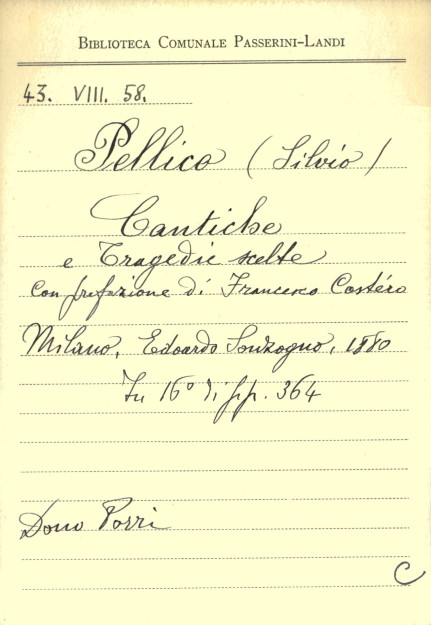 BIBLIOTECA COMUNALE PASSERINI-LANDI
43. VIII. 58.
Pellico (Silvio)
Cantiche
e Tragedie scelte
con prefazione di Francesco Costéro
Milano, Edoardo Sonzogno, 1880
In 16º di pp. 364
Dono Porri
C